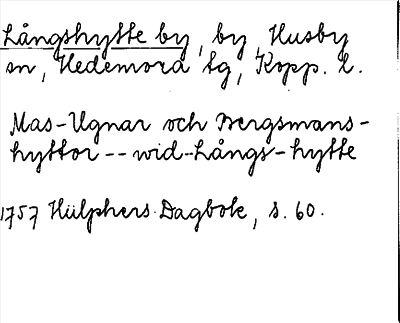 Långshytte by, by, Husby
sn, Hedemora tg, Kopp. l.
Mas-Ugnar och Bergsmans-
hyttor -- wid -- Långs-hytte
1757 Hülphers Dagbok, s. 60.